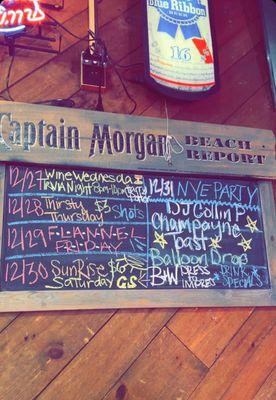 Blue Ribbon
16
Captain Morgan
BEACH
REPORT
12/27 Wine Wednesday
TRIVIA Night 8pm-10pm
12/28 Thirsty $3 shots
Thursday
12/29 FLANNEL
FRIDAY
12/30 SunRise
Saturday
12/31 NYE PARTY
DJ Collin P
Champayne
past
Balloon Drop
B&W DRESS TO IMPRESS
DRINK
SPECIALS